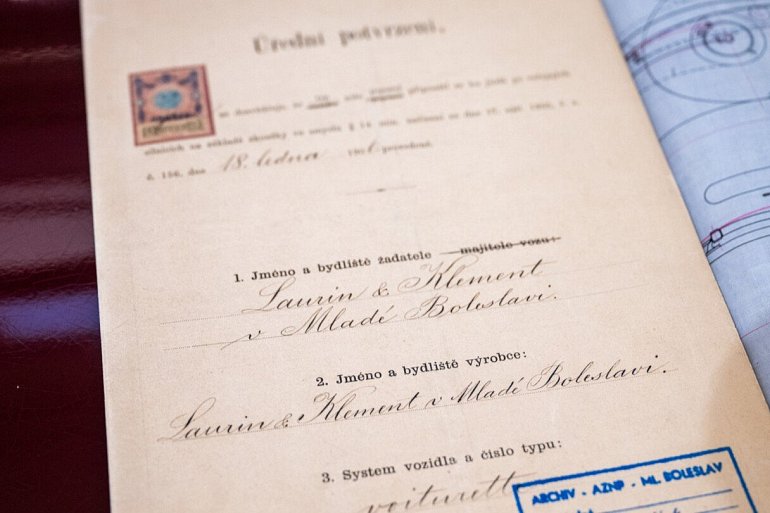 Úřední potvrzení.
č. 156, dne 18. ledna
1. Jméno a bydliště žadatele majitele vozu:
Laurin & Klement
v Mladé Boleslavi.
2. Jméno a bydliště výrobce:
Laurin & Klement v Mladé Boleslavi.
3. System vozidla a číslo typu:
voiturett
ARCHIV - AZNP - ML. BOLESLAV